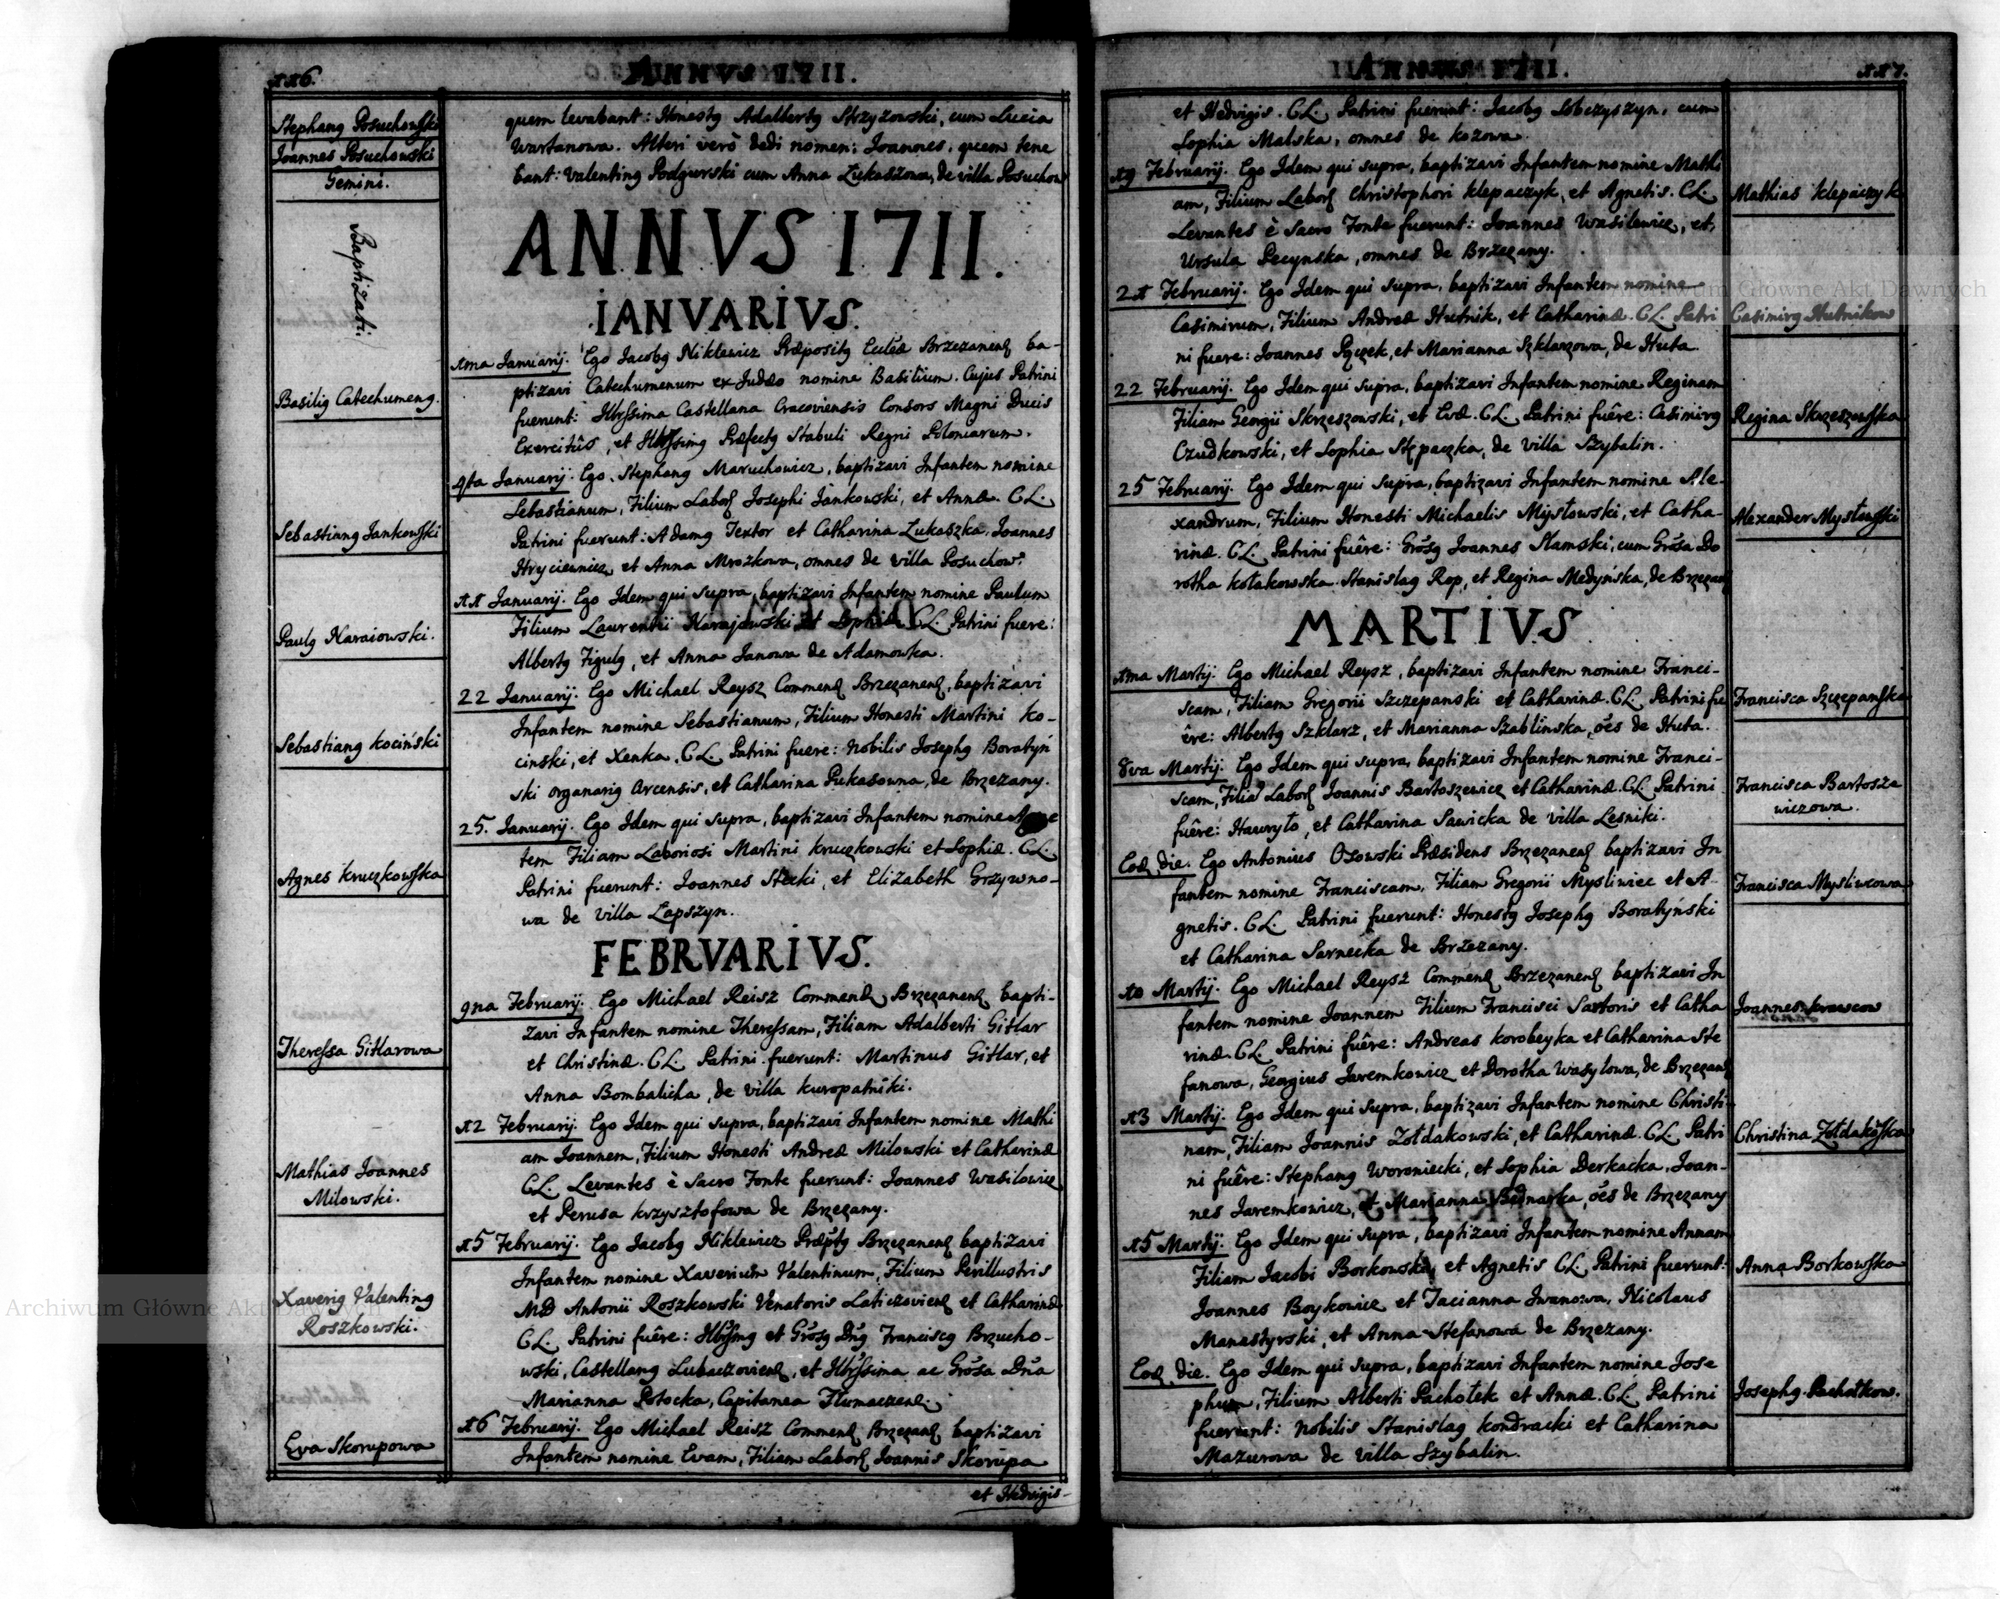 116.
ANNVS 1711.
Stephang Posuchowski
Joannes Posuchowski
Gemini.
Baptizati:
Basilig Catechumeng.
Sebastiang Jankowski
Paulg Naraiowski.
Sebastiang Kociński
Agnes Kruczkowska
Theressa Gitlarowa
Mathias Joannes
Milowski.
Xaverig Valenting
Roszkowski.
Eva Skorupowa
quem levabant: Honestg Adalbertg Strzyzowski, cum Lucia
Wartanowa. Alteri verò dedi nomen: Joannes, quem tene
bant: Valenting Podgurski cum Anna Lukaszowa, de villa Posuchow
ANNVS 1711.
IANVARIVS.
1ma Januarij. Ego Jacobg Niklewicz Præpositg Eccleæ Brzezanens ba-
ptizavi Catechumenum ex Judæo nomine Basilium. Cujus Patrini
fuerunt: Illrssima Castellana Cracoviensis Consors Magni Ducis
Exercitûs, et Illrssimg Præfectg Stabuli Regni Poloniarum.
9ta Januarij. Ego Stephang Maruchowicz, baptizavi Infantem nomine
Sebastianum, Filium Labors Josephi Jankowski, et Annæ. CL.
Patrini fuerunt: Adamg Textor et Catharina Lukaszka. Joannes
Hryciewicz, et Anna Mrozkowa, omnes de villa Posuchow.
11 Januarij. Ego Idem qui supra, baptizavi Infantem nomine Paulum
Filium Laurentii Narajowski et Sophiæ CL. Patrini fuere:
Albertg Figulg, et Anna Janowa de Adamowka.
22 Januarij. Ego Michael Reysz Commends Brzezanens, baptizavi
Infantem nomine Sebastianum, Filium Honesti Martini Ko-
cinski, et Xenka. CL. Patrini fuere: Nobilis Josephg Boratyń
ski organarig Arcensis, et Catharina Pukasowna, de Brzezany.
25. Januarij. Ego Idem qui supra, baptizavi Infantem nomine Agne
tem Filiam Laboriosi Martini Kruczkowski et Sophiæ. CL.
Patrini fuerunt: Joannes Stecki, et Elizabeth Grzywno-
wa de villa Lapszyn.
FEBRVARIVS.
9na Februarij. Ego Michael Reisz Commends Brzezanens bapti-
zavi Infantem nomine Theressam, Filiam Adalberti Gitlar
et Christinæ. CL. Patrini fuerunt: Martinus Gitlar, et
Anna Bombalicha, de villa Kuropatniki.
12 Februarij. Ego Idem qui supra, baptizavi Infantem nomine Mathi
am Joannem, Filium Honesti Andreæ Milowski et Catharinæ
CL. Levantes è Sacro Fonte fuerunt: Joannes Wasilowicz
et Perusa Krzysztofowa de Brzezany.
15 Februarij. Ego Jacobg Niklewicz Præptg Brzezanens baptizavi
Infantem nomine Xaverium Valentinum, Filium Perillustris
MD Antonii Roszkowski Venatoris Laticzoviens et Catharinæ
CL. Patrini fuêre: Illrssmg et Grosg Dng Franciscg Brzucho-
wski, Castellang Lubaczoviens, et Illrssima ac Grosa Dna
Marianna Potocka, Capitanea Tlumaczens.
16 Februarij. Ego Michael Reisz Commends Brzezans baptizavi
Infantem nomine Evam, Filiam Labors Joannis Skorupa
et Hedvigis
ANNVS 1711.
117.
et Hedvigis. CL. Patrini fuerunt: Jacobg Sobczyszyn, cum
Sophia Malska, omnes de Kozowa.
19 Februarij. Ego Idem qui supra, baptizavi Infantem nomine Mathi
am, Filium Labors Christophori Klepaczyk, et Agnetis. CL.
Levantes è Sacro Fonte fuerunt: Joannes Wasilewicz, et
Ursula Pecynska, omnes de Brzezany.
21 Februarij. Ego Idem qui supra, baptizavi Infantem nomine
Casimirum, Filium Andreæ Hutnik, et Catharinæ. CL. Patri
ni fuere: Joannes Pączek, et Marianna Szklarzowa, de Huta.
22 Februarij. Ego Idem qui supra, baptizavi Infantem nomine Reginam
Filiam Georgii Skrzeszowski, et Evæ. CL. Patrini fuêre: Casimirg
Czudkowski, et Sophia Stępaczka, de villa Szybalin.
25 Februarij. Ego Idem qui supra, baptizavi Infantem nomine Ale-
xandrum, Filium Honesti Michaelis Mysłowski, et Catha-
rinæ. CL. Patrini fuêre: Grosg Joannes Slamski, cum Grosa Do
rotha Kołakowska. Stanislag Rop, et Regina Medyńska, de Brzezan
MARTIVS
1ma Martij. Ego Michael Reysz, baptizavi Infantem nomine Franci-
scam, Filiam Gregorii Szczepanski et Catharinæ. CL. Patrini fu
ere: Albertg Szklarz, et Marianna Szablinska, oës de Huta.
8va Martij. Ego Idem qui supra, baptizavi Infantem nomine Franci-
scam, Filiã Labors Joannis Bartoszewicz et Catharinæ. CL. Patrini
fuêre: Hawryło, et Catharina Sawicka de villa Lesniki.
Eod. die. Ego Antonius Osowski Præsidens Brzezanens baptizavi In
fantem nomine Franciscam, Filiam Gregorii Mysliwiec et A-
gnetis. CL. Patrini fuerunt: Honestg Josephg Boratyński
et Catharina Sarnecka de Brzezany.
10 Martij. Ego Michael Reysz Commends Brzezanens baptizavi In
fantem nomine Joannem Filium Francisci Sartoris et Catha
rinæ. CL. Patrini fuêre: Andreas Korobeyka et Catharina Ste
fanowa, Georgius Jaremkowicz et Dorotha Wasylowa, de Brzezany
13 Martij. Ego Idem qui supra, baptizavi Infantem nomine Christi-
nam, Filiam Joannis Zołdakowski, et Catharinæ. CL. Patri
ni fuêre: Stephang Woroniecki, et Sophia Derkacka. Joan-
nes Jaremkowicz, et Marianna Bednarka, oës de Brzezany
15 Martij. Ego Idem qui supra, baptizavi Infantem nomine Annam
Filiam Jacobi Borkowski et Agnetis CL. Patrini fuerunt:
Joannes Boykowicz et Tacianna Iwanowa, Nicolaus
Manastyrski, et Anna Stefanowa de Brzezany.
Eod. die. Ego Idem qui supra, baptizavi Infantem nomine Jose
phum, Filium Alberti Pachołek et Annæ. CL. Patrini
fuerunt: Nobilis Stanislag Kondracki et Catharina
Mazurowa de villa Szybalin.
Mathias Klepaczyk
Casimirg Hutnikow
Regina Skrzeszowska
Alexander Mysłowski
Francisca Szczepanska
Francisca Bartosze
wiczowa.
Francisca Mysliwcowa
Joannes Krawcow
Christina Zołdakoska
Anna Borkowska
Josephg Pachołkow.
Archiwum Główne Akt Dawnych
Archiwum Główne Akt Dawnych